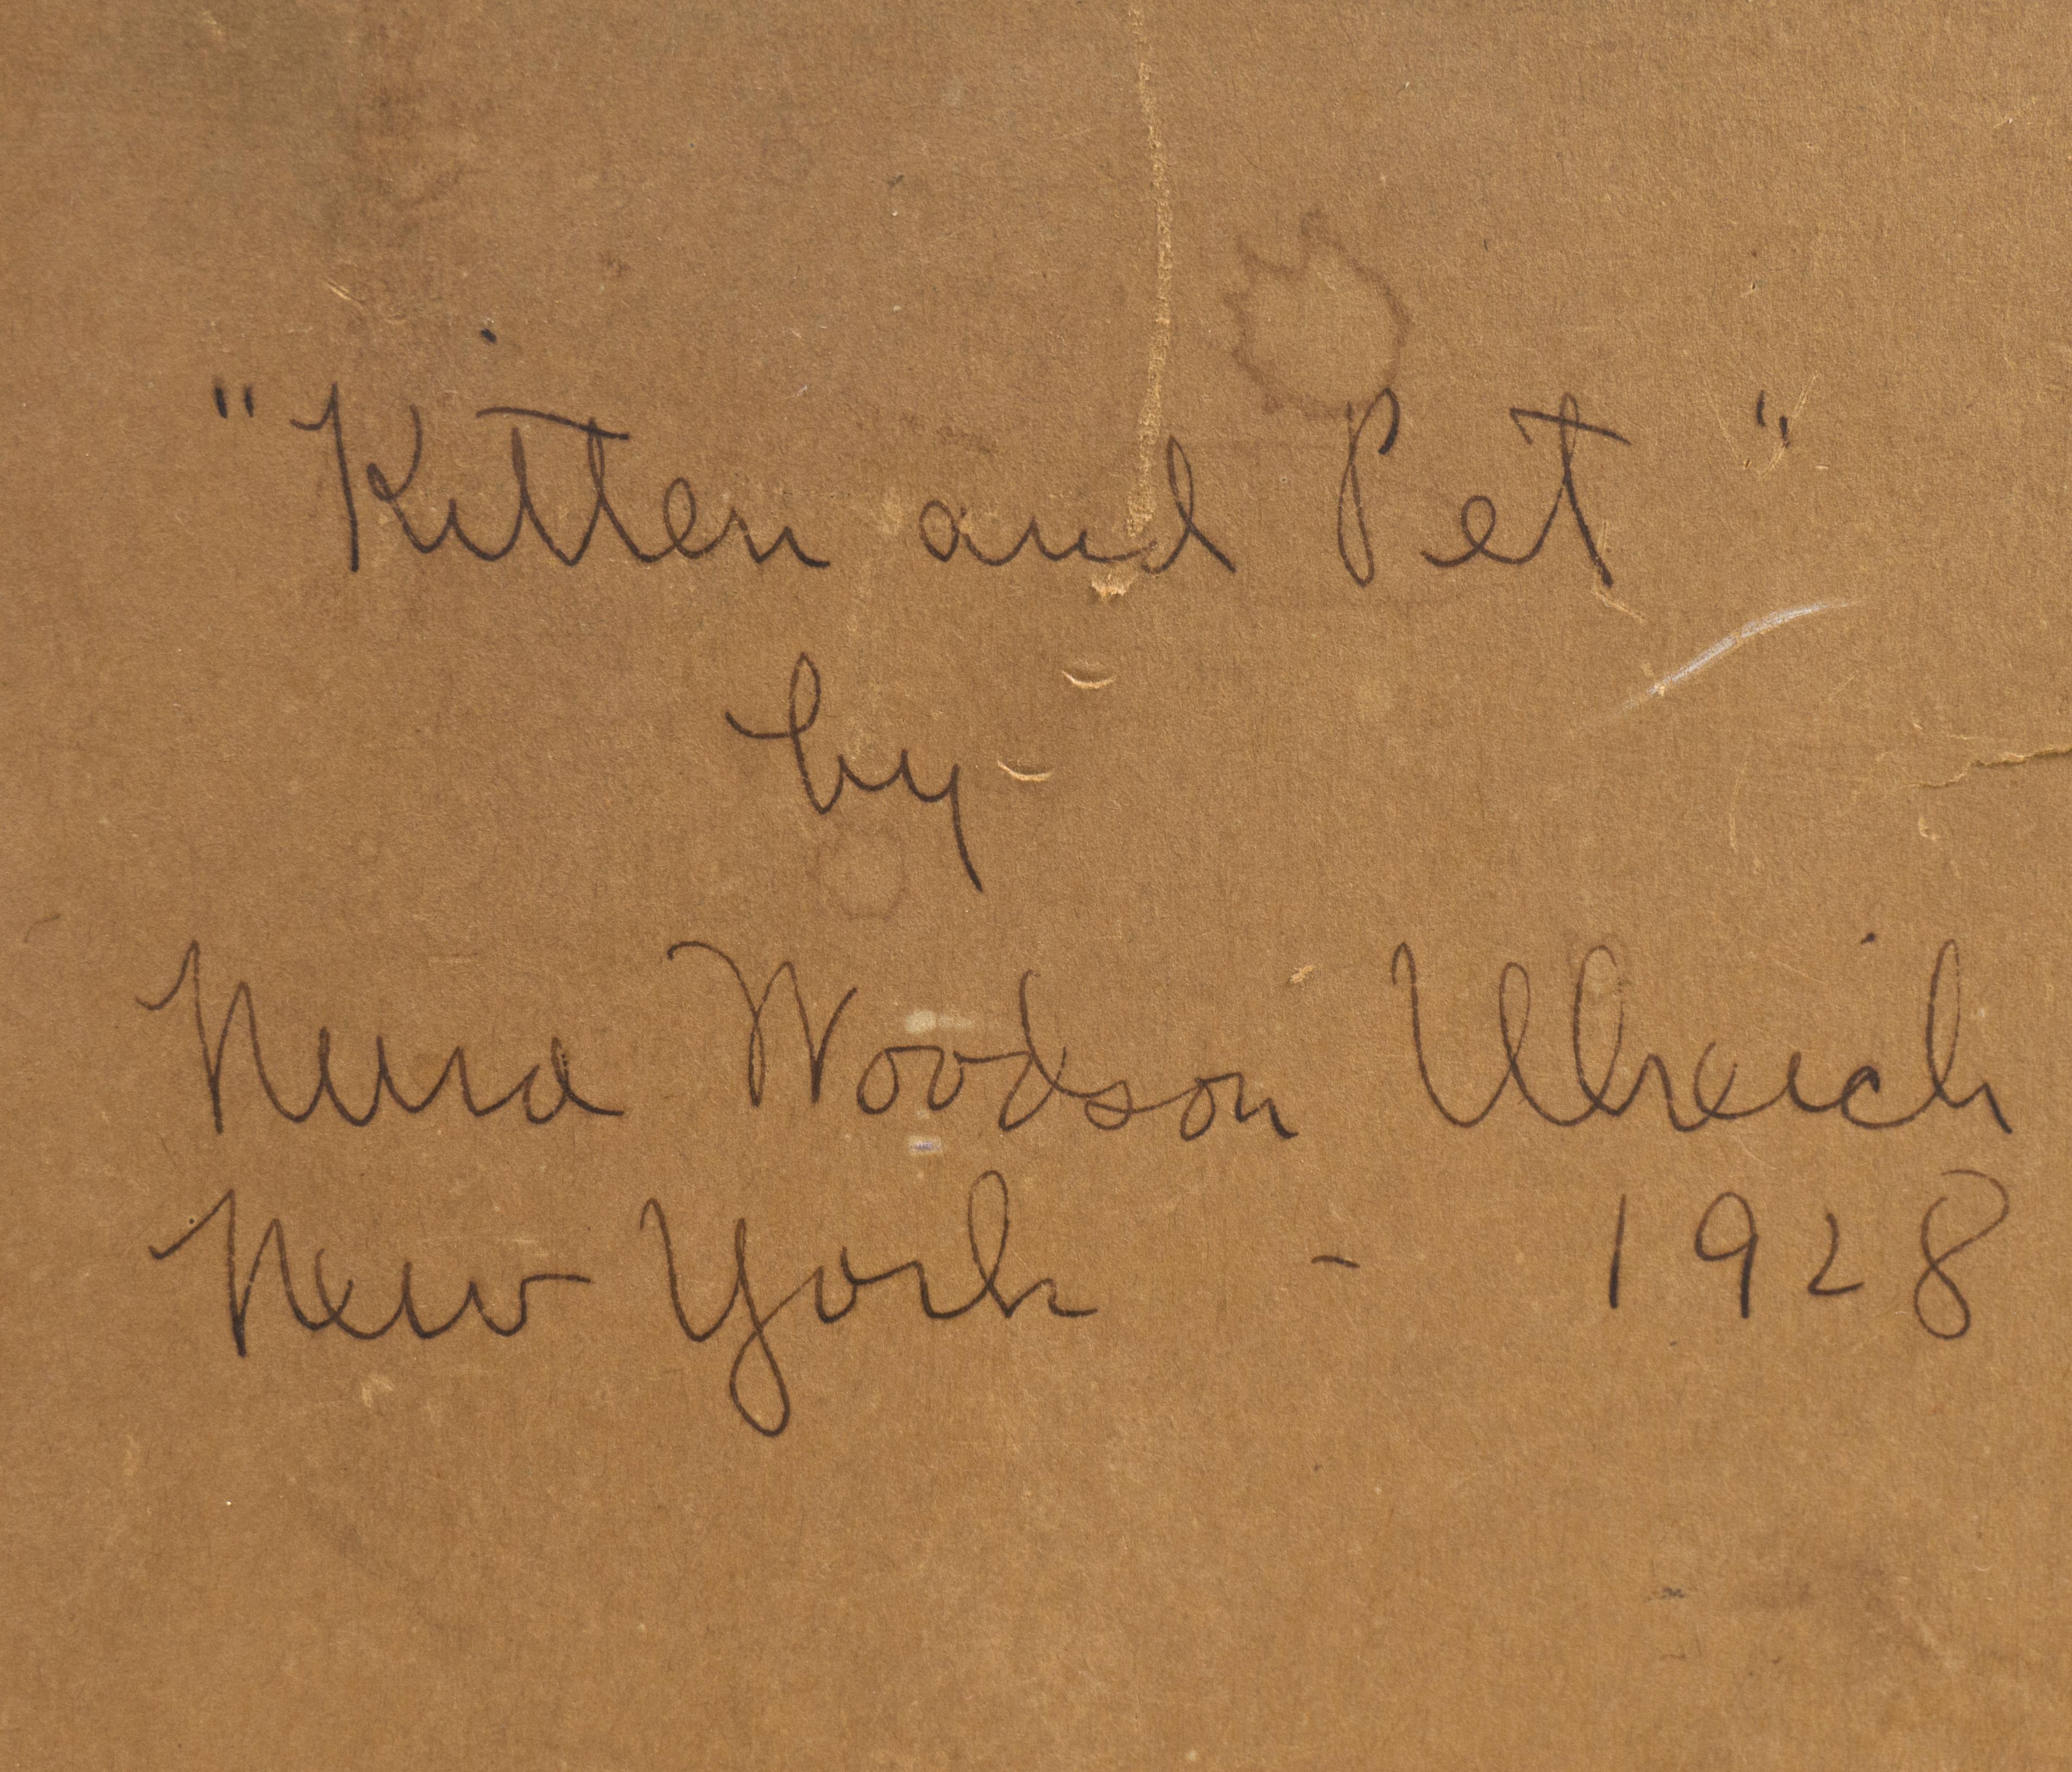 "Kitten and Pet"
by-
Nura Woodson Ulreich
New York - 1928